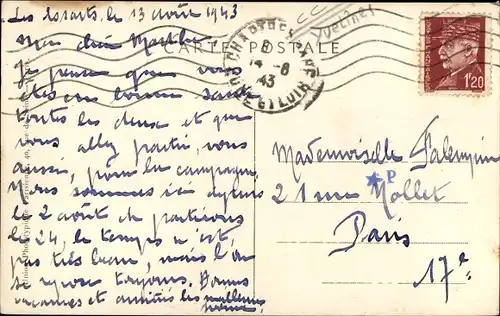 Les Essarts le 13 août 1943
Ma chère Marthe
Je pense que vous
êtes en bonne santé
toutes les deux et que
vous allez partir, vous
aussi, pour la campagne.
Nous sommes ici depuis
le 2 août et partirons
le 24, le temps n'est
pas très beau, mais l'on
se repose toujours. Bonnes
vacances et amitiés les meilleures
CARTE POSTALE
Yvelines
8
14-8
43
1F20
Mademoiselle
P
21 rue Nollet
Paris
17e